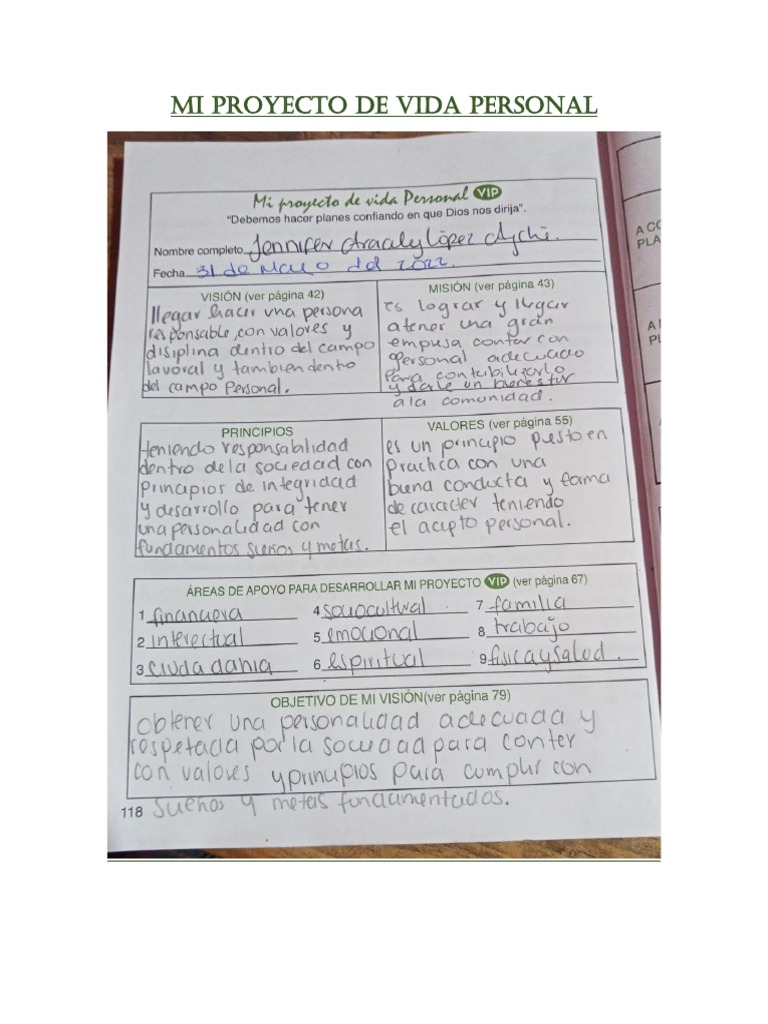 MI PROYECTO DE VIDA PERSONAL
Mi proyecto de vida Personal VIP
"Debemos hacer planes confiando en que Dios nos dirija".
Nombre completo Jennifer Aracely López Ajchi.
Fecha 31 de Marzo del 2022.
VISIÓN (ver página 42)
llegar hacer una persona
responsable, con valores y
disiplina dentro del campo
lavoral y tambien dentro
del campo Personal.
MISIÓN (ver página 43)
es lograr y llegar
atener una gran
empresa contar con
personal adecuado
para contibilizarlo
y darle un bienestar
a la comunidad.
PRINCIPIOS
teniendo responsabilidad
dentro de la sociedad con
principios de integridad
y desarrollo para tener
una personalidad con
fundamentos sueños y metas.
VALORES (ver página 55)
es un principio puesto en
practica con una
buena conducta y forma
de caracter teniendo
el acepto personal.
ÁREAS DE APOYO PARA DESARROLLAR MI PROYECTO VIP (ver página 67)
1 financiera 4 sociocultural 7 familia
2 interectual 5 emocional 8 trabajo
3 ciudadania 6 espiritual 9 fisica y salud.
OBJETIVO DE MI VISIÓN(ver página 79)
obtener una personalidad adecuada y
respetada por la sociedad para conter
con valores y principios para cumplir con
sueños y metas fundamentados.
118
A CO
PLA
A